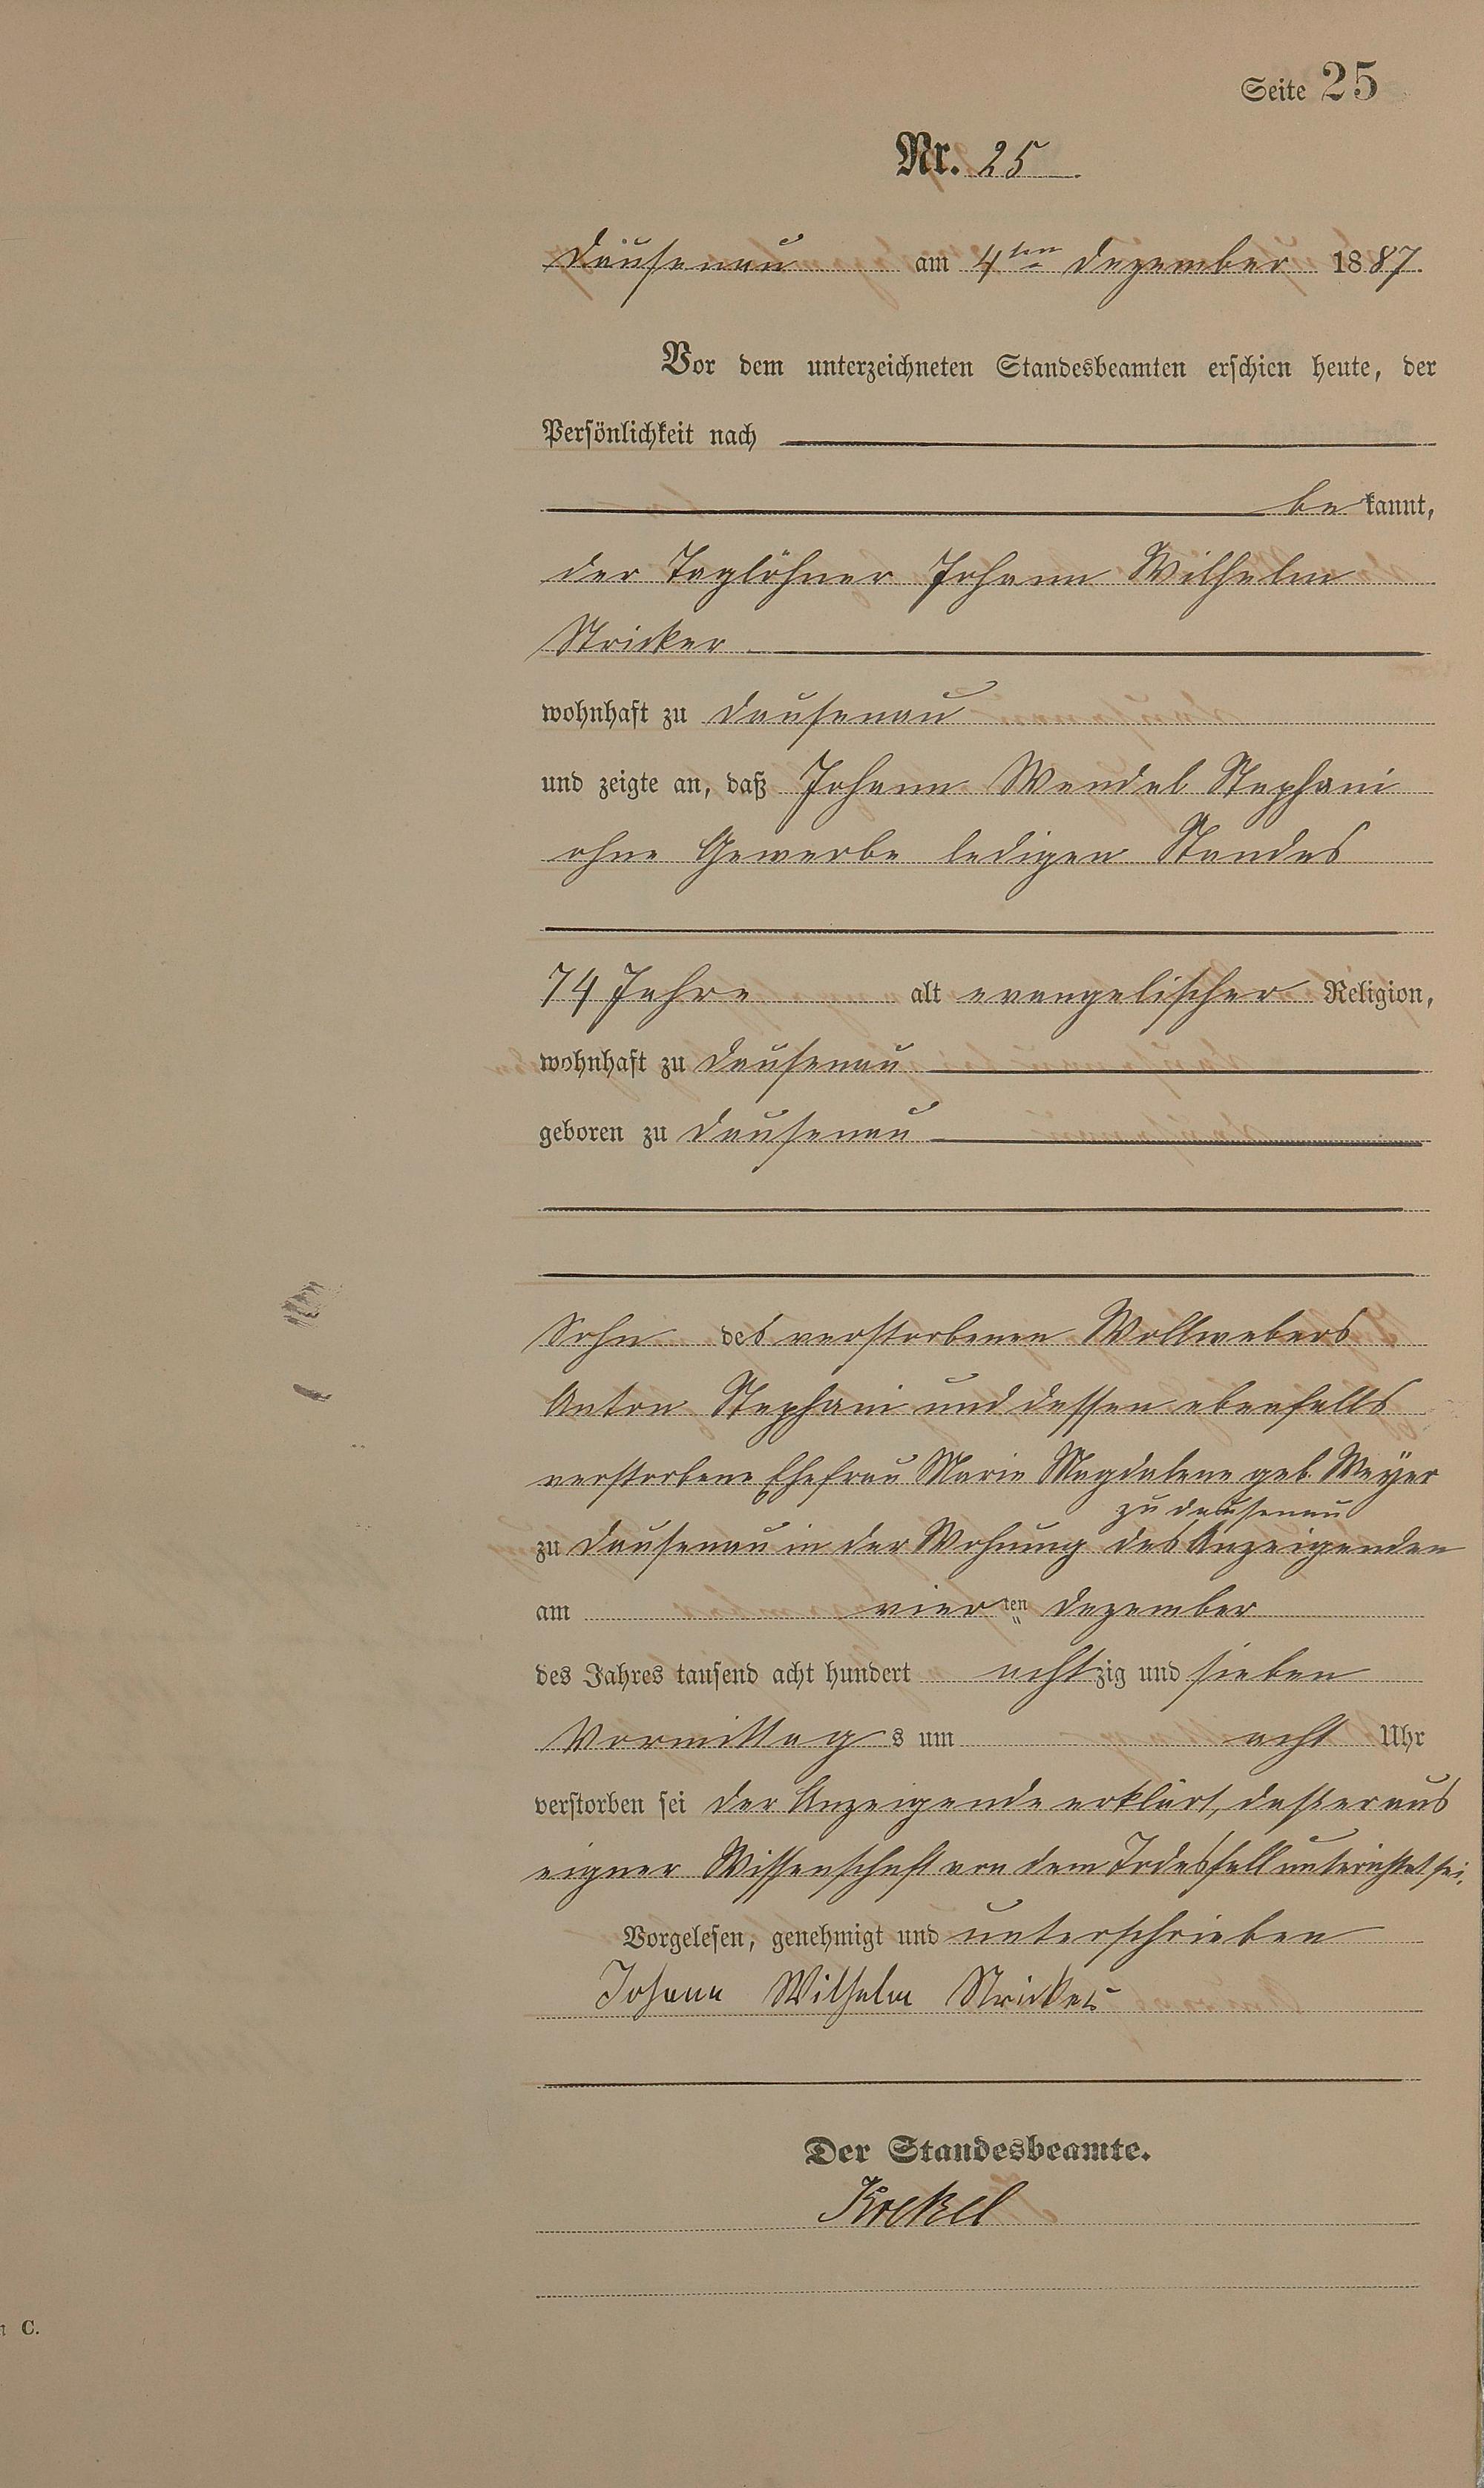 Seite 25
Nr. 25
Dausenau am 4ten Dezember 1887.
Vor dem unterzeichneten Standesbeamten erschien heute, der
Persönlichkeit nach
bekannt,
der Taglöhner Johann Wilhelm
Stricker
wohnhaft zu Dausenau
und zeigte an, daß Johann Wendel Stephani
ohne Gewerbe ledigen Standes
74 Jahre alt evangelischer Religion,
wohnhaft zu Dausenau
geboren zu Dausenau
Sohn des verstorbenen Wollwebers
Anton Stephani und dessen ebenfalls
verstorbene Ehefrau Marie Magdalene geb. Meÿer
zu Dausenau
zu Dausenau in der Wohnung des Anzeigenden
am vierten Dezember
des Jahres tausend acht hundert achtzig und sieben
Vormittags um acht Uhr
verstorben sei der Anzeigende erklärt, daß er aus
eigner Wissenschaft von dem Todesfall unterichtet sei.
Vorgelesen, genehmigt und unterschrieben
Johann Wilhelm Stricker
Der Standesbeamte.
C.